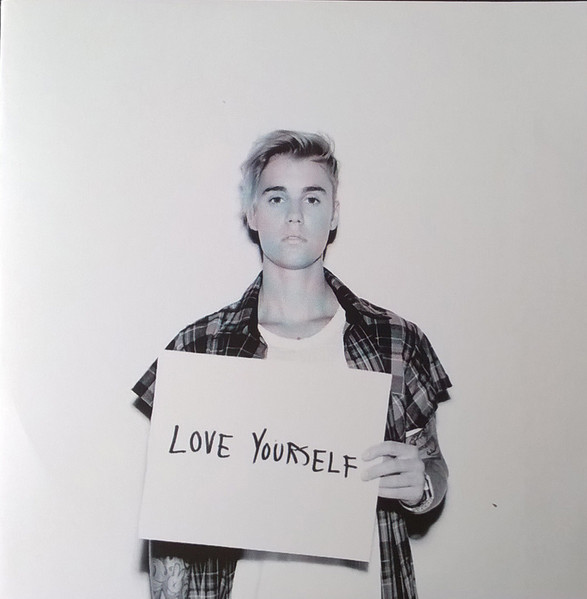 LOVE YOURSELF